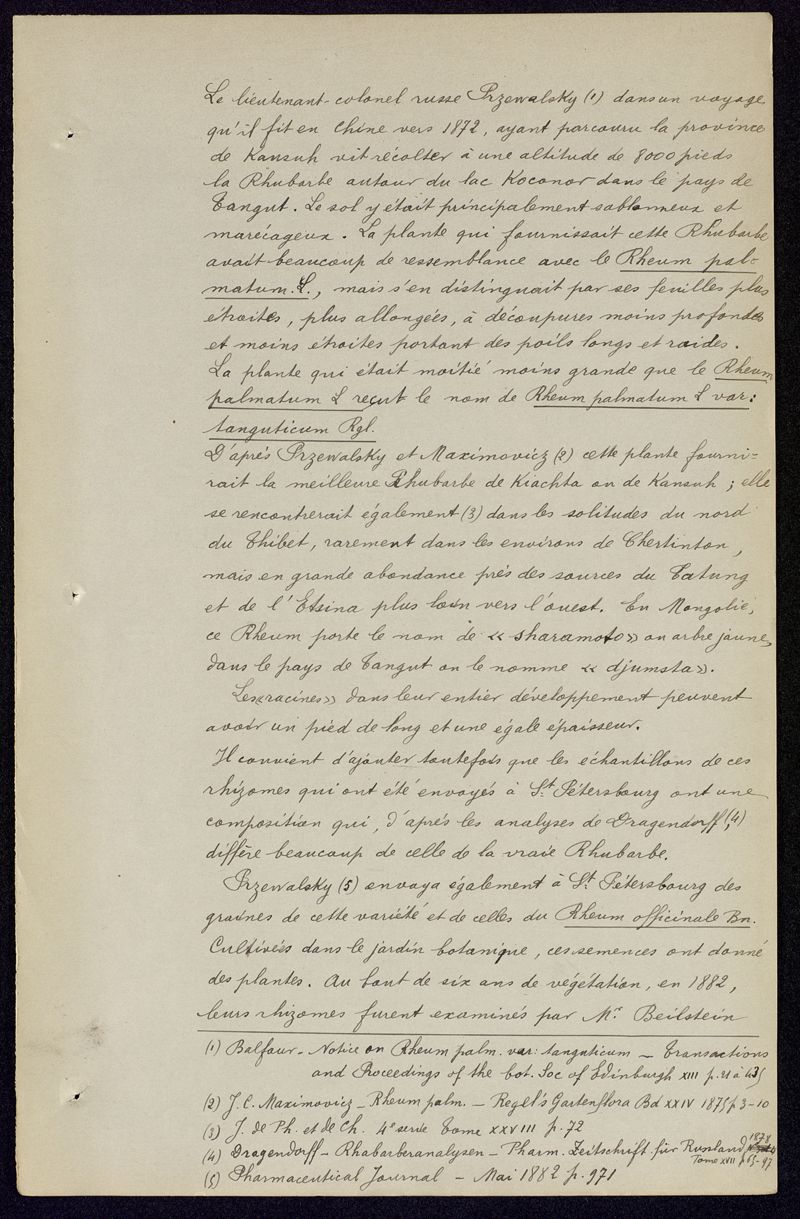 Le lieutenant-colonel russe Przewalsky (1) dans un voyage
qu'il fit en Chine vers 1872, ayant parcouru la province
de Kansuh vit récolter à une altitude de 8000 pieds
la Rhubarbe autour du lac Koconor dans le pays de
Tangut. Le sol y était principalement sablonneux et
marécageux. La plante qui fournissait cette Rhubarbe
avait beaucoup de ressemblance avec le Rheum pal-
matum. L., mais s'en distinguait par ses feuilles plus
étroites, plus allongées, à découpures moins profondes
et moins étroites portant des poils longs et raides.
La plante qui était moitié moins grande que le Rheum
palmatum L reçut le nom de Rheum palmatum L var:
tanguticum Rgl.
D'après Przewalsky et Maximovicz (2) cette plante fourni-
rait la meilleure Rhubarbe de Kiachta ou de Kansuh ; elle
se rencontrerait également (3) dans les solitudes du nord
du Thibet, rarement dans les environs de Chertinton,
mais en grande abondance près des sources du Tatung
et de l'Etsina plus loin vers l'ouest. En Mongolie,
ce Rheum porte le nom de « sharamoto» ou arbre jaune,
dans le pays de Tangut on le nomme « djumsta».
Les «racines» dans leur entier développement peuvent
avoir un pied de long et une égale épaisseur.
Il convient d'ajouter toutefois que les échantillons de ces
rhizomes qui ont été envoyés à St. Pétersbourg ont une
composition qui, d'après les analyses de Dragendorff (4)
diffère beaucoup de celle de la vraie Rhubarbe.
Przewalsky (5) envoya également à St. Pétersbourg des
graines de cette variété et de celles du Rheum officinale Bn.
Cultivées dans le jardin botanique, ces semences ont donné
des plantes. Au bout de six ans de végétation, en 1882,
leurs rhizomes furent examinés par Mr. Beilstein
(1) Balfour - Notice on Rheum palm. var: tanguticum - Transactions
and Proceedings of the bot. Soc of Edinburgh XIII p.
(2) J. C. Maximovicz - Rheum palm. - Regel's Gartenflora Bd XXIV 1875 p 3-10
(3) J. de Ph. et de Ch. 4e serie Tome XXVIII p. 72
(4) Dragendorff - Rhabarberanalysen - Pharm. Zeitschrift für Russland 1878
Tome XVII p 65-97
(5) Pharmaceutical Journal - Mai 1882 p. 971